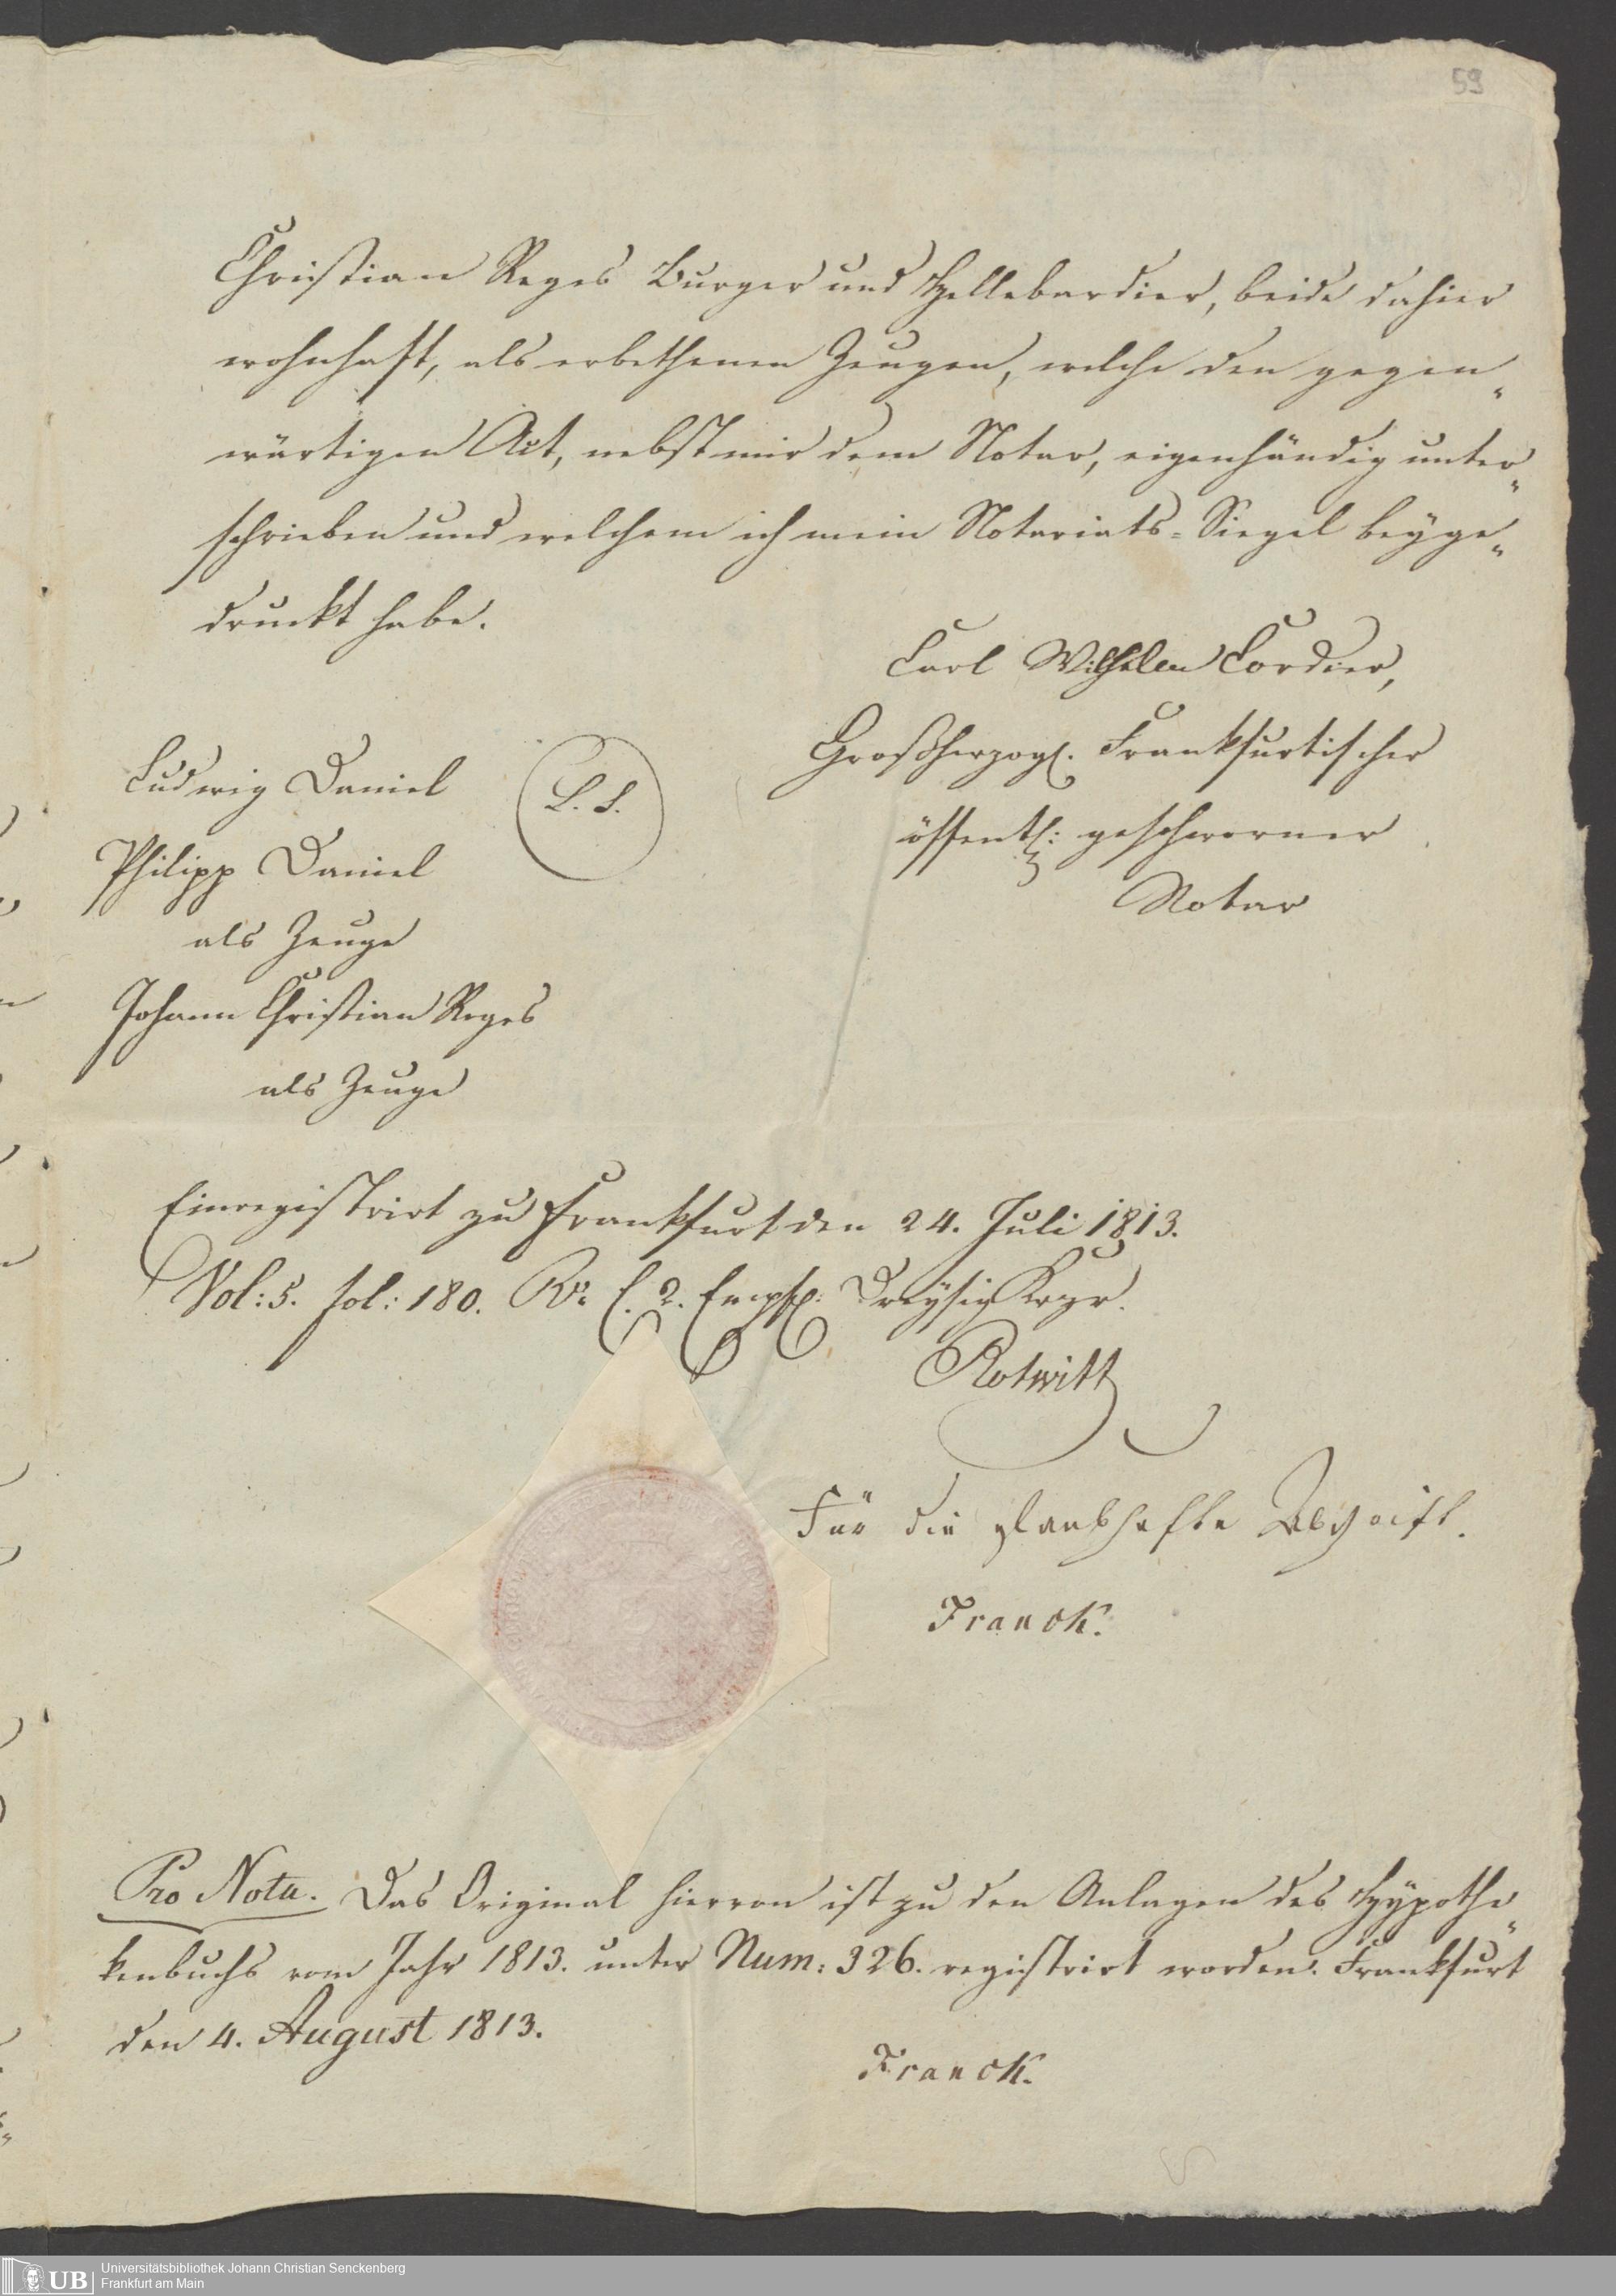 59
Christian Reges Burger und Hellebardier, beide dahier
wohnhaft, als erbethenen Zeugen, welche den gegen„
wärtigen Act, nebst mir dem Notar, eigenhändig unter„
schrieben und welchem ich mein Notariats=Siegel beyge„
druckt habe.
Carl Wilhelm Cordier,
Großherzogl. Frankfurtischer
öffentl: geschworner
Notar
L. S.
Ludwig Daniel
Philipp Daniel
als Zeuge
Johann Christian Reges
als Zeuge
Einregistrirt zu Frankfurt den 24. Juli 1813.
Vol: 5. fol: 180. Ro C. 2. Empf: Dreysig Krzr.
Rotwitt
Für die glaubhafte Abschrift.
Franck.
Pro Nota. Das Original hiervon ist zu den Anlagen des Hypothe„
kenbuchs vom Jahr 1813. unter Num: 326. registrirt worden. Frankfurt
den 4. August 1813.
Franck.
UB Universitätsbibliothek Johann Christian Senckenberg
Frankfurt am Main